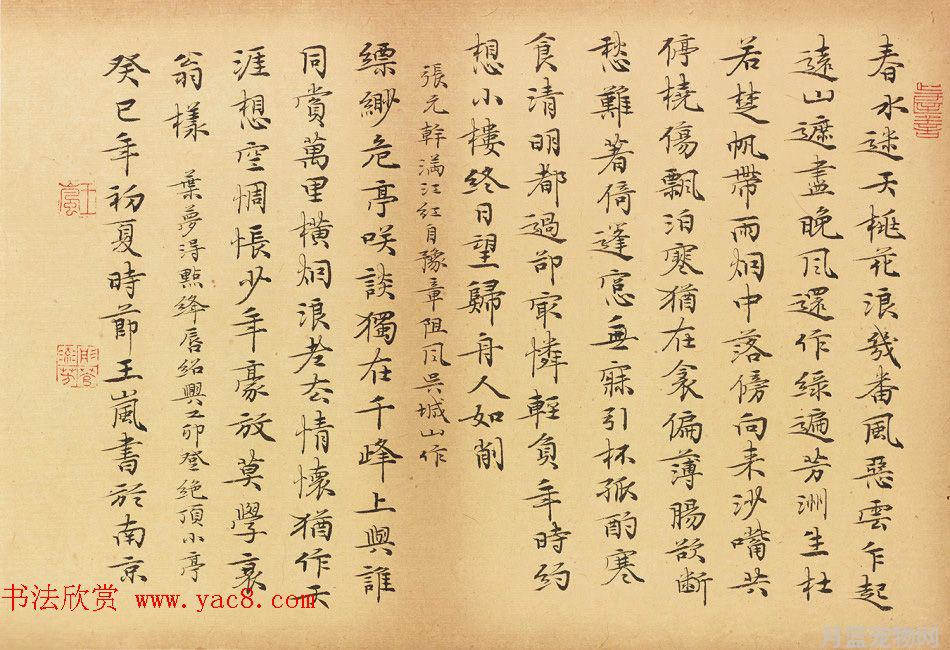 春水迷天桃花浪幾番風惡雲乍起
遠山遮盡晚風還作綠遍芳洲生杜
若楚帆帶雨烟中落傍向来沙嘴共
停橈傷飄泊寒猶在衾偏薄腸欲斷
愁難著倚蓬窓無寐引杯孤酌寒
食清明都過卻最憐輕負年時約
想小樓終日望歸舟人如削
張元幹满江紅自豫章阻風吳城山作
縹緲危亭咲談獨在千峰上與誰
同賞萬里橫烟浪老去情懷猶作天
涯想空惆悵少年豪放莫學衰
翁樣 葉夢得點絳唇紹興乙卯登絕頂小亭
癸巳年初夏時節王嵐書於南京
王嵐
书法欣赏 www.yac8.com
月蓝宠物网